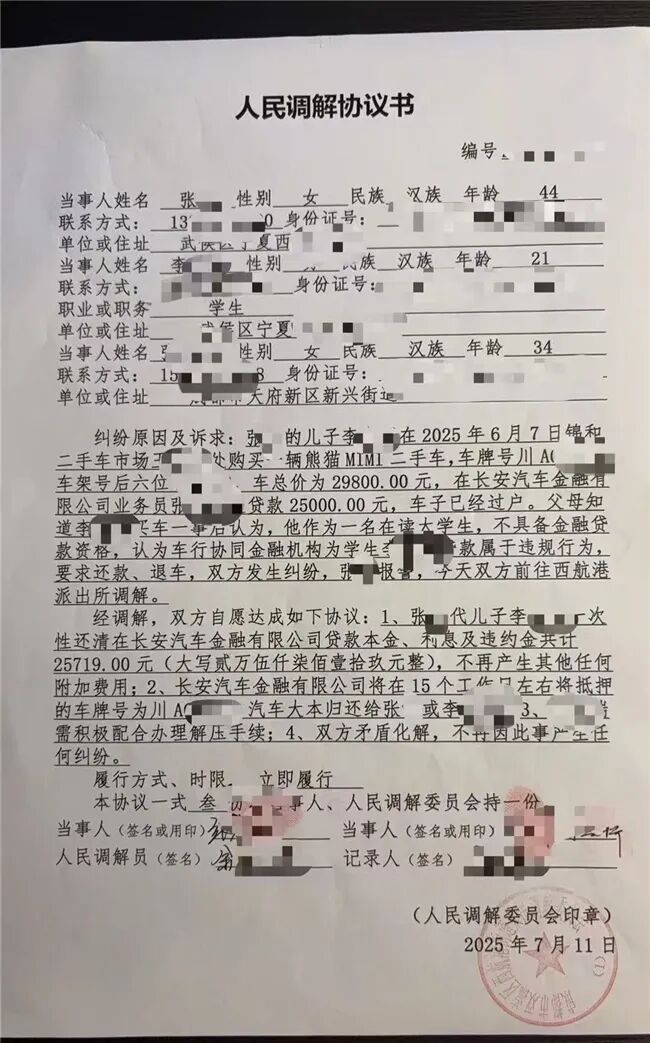 人民调解协议书
编号
当事人姓名 张 性别 女 民族 汉族 年龄 44
联系方式：13 0 身份证号：
单位或住址 武侯区宁夏西
当事人姓名 李 性别 民族 汉族 年龄 21
联系方式： 身份证号：
职业或职务 学生
单位或住址 武侯区宁夏
当事人姓名 张 性别 女 民族 汉族 年龄 34
联系方式：15 3 身份证号：
单位或住址 天府新区新兴街道
纠纷原因及诉求：张 的儿子李 在 2025 年 6 月 7 日锦和
二手车市场王 处购买一辆熊猫 MIMI 二手车，车牌号川 A
车架号后六位 车总价为 29800.00 元，在长安汽车金融有
限公司业务员张 贷款 25000.00 元，车子已经过户。父母知
道李 买车一事后认为，他作为一名在读大学生，不具备金融贷
款资格，认为车行协同金融机构为学生 款属于违规行为，
要求还款、退车，双方发生纠纷，张 报警，今天双方前往西航港
派出所调解。
经调解，双方自愿达成如下协议：1、张 代儿子李 一次
性还清在长安汽车金融有限公司贷款本金、利息及违约金共计
25719.00 元（大写贰万伍仟柒佰壹拾玖元整），不再产生其他任何
附加费用；2、长安汽车金融有限公司将在 15 个工作日左右将抵押
的车牌号为川 A 汽车大本归还给张 或李 3、
需积极配合办理解压手续；4、双方矛盾化解，不再因此事产生任
何纠纷。
履行方式、时限 立即履行
本协议一式 叁 份 当事人、人民调解委员会持一份
当事人（签名或用印） 当事人（签名或用印）
人民调解员（签名） 记录人（签名）
（人民调解委员会印章）
2025 年 7 月 11 日